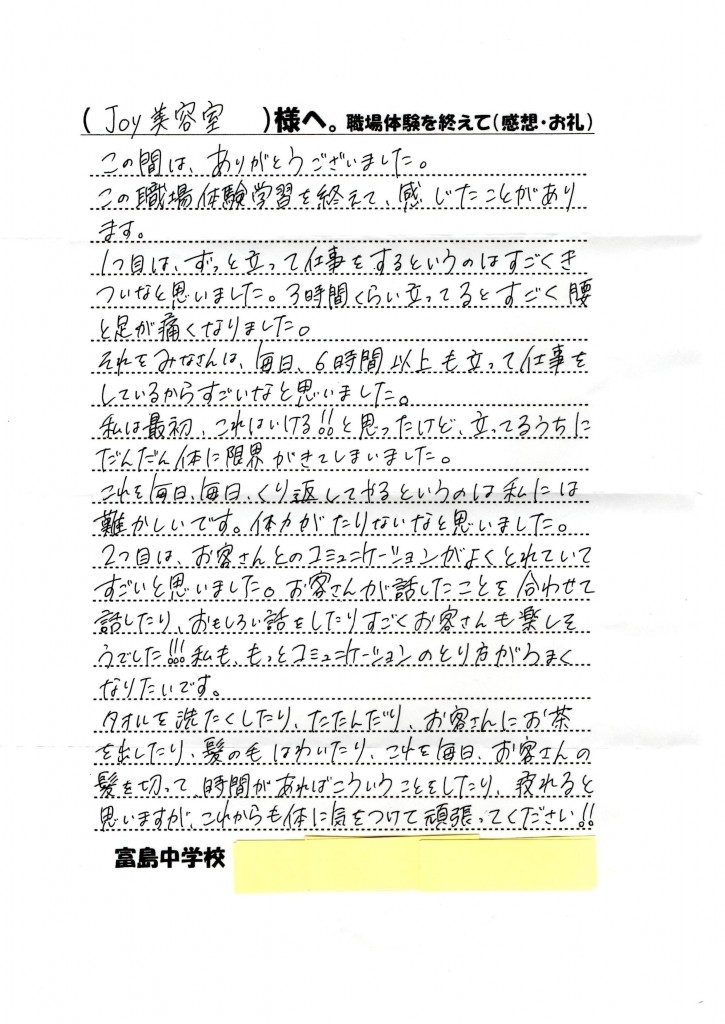 ( Joy美容室 )様へ。職場体験を終えて(感想・お礼)
この間は、ありがとうございました。
この職場体験学習を終えて、感じたことがあり
ます。
1つ目は、ずっと立って仕事をするというのはすごくき
ついなと思いました。3時間くらい立ってるとすごく腰
と足が痛くなりました。
それをみなさんは、毎日、6時間以上も立って仕事を
しているからすごいなと思いました。
私は最初、これはいける!!と思ったけど、立ってるうちに
だんだん体に限界がきてしまいました。
これを毎日、毎日、くり返してやるというのは私には
難かしいです。体力がたりないなと思いました。
2つ目は、お客さんとのコミュニケーションがよくとれていて
すごいと思いました。お客さんが話したことを合わせて
話したり、おもしろい話をしたりすごくお客さんも楽しそ
うでした!!!私も、もっとコミュニケーションのとり方がうまく
なりたいです。
タオルを洗たくしたり、たたんだり、お客さんにお茶
を出したり、髪の毛はわいたり、これを毎日、お客さんの
髪を切って、時間があればこういうことをしたり、疲れると
思いますが、これからも体に気をつけて頑張ってください!!
富島中学校